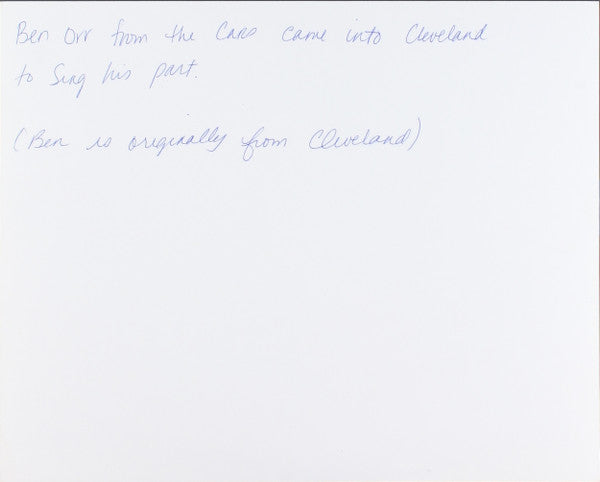 Ben Orr from the Cars came into Cleveland
to Sing his part.
(Ben is originally from Cleveland)